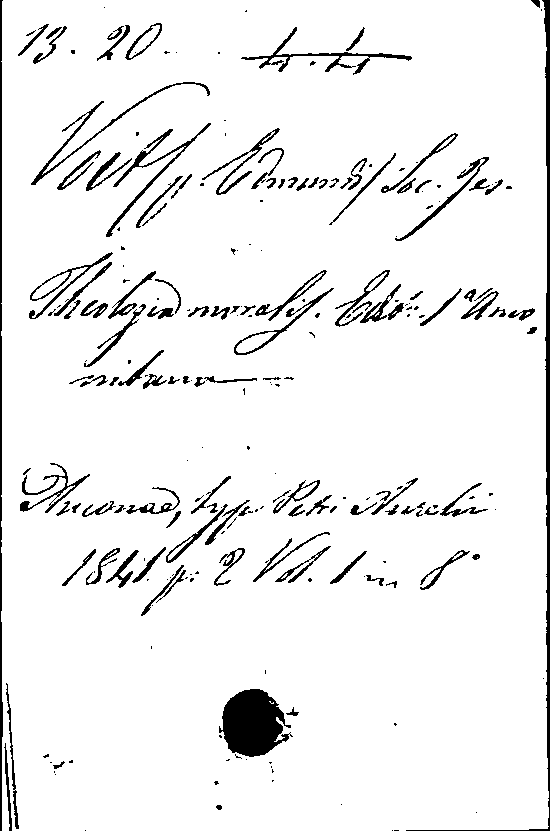 13. 20. 4. 4
Voit/p. Edmund/Soc. Jes.
Theologia moralis. Edit. 1ª Anco-
nitana
Anconae, typ Petri Aurelii
1841 p. 2 Vol. 1 in 8°